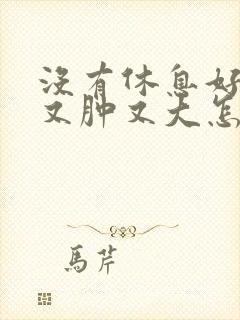 没有休息好
又肿又大怎
馬芹